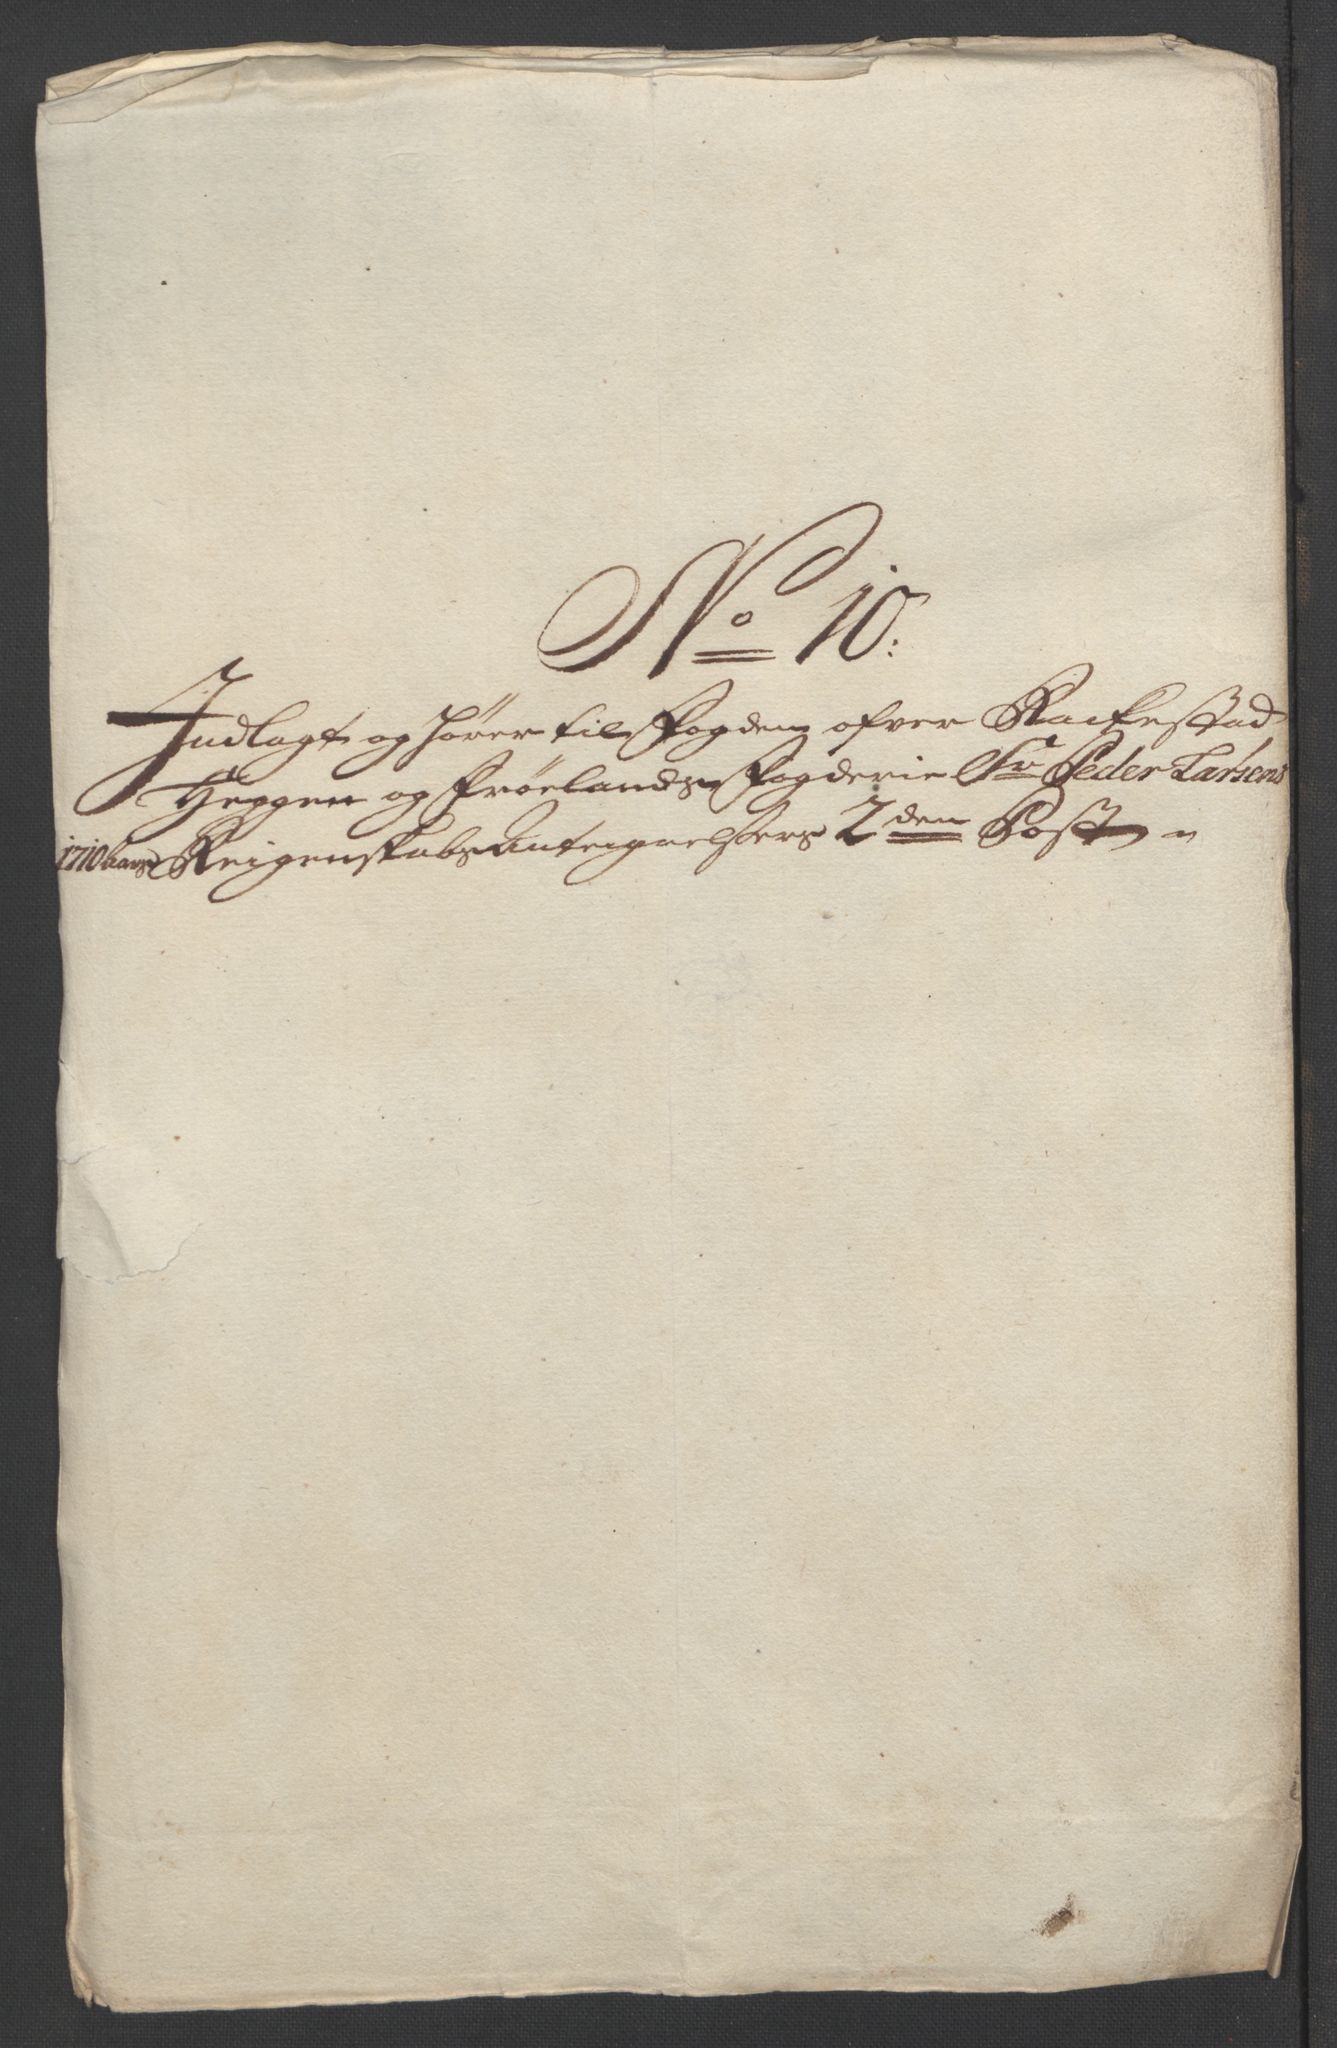 No 10:
Indlagt og hører til Fogden ofver Rackestad
Heggen og Frøelands Fogderie Sr Peder Larsens
1710 aars Reigenskabs Anteignelsers 2den Post